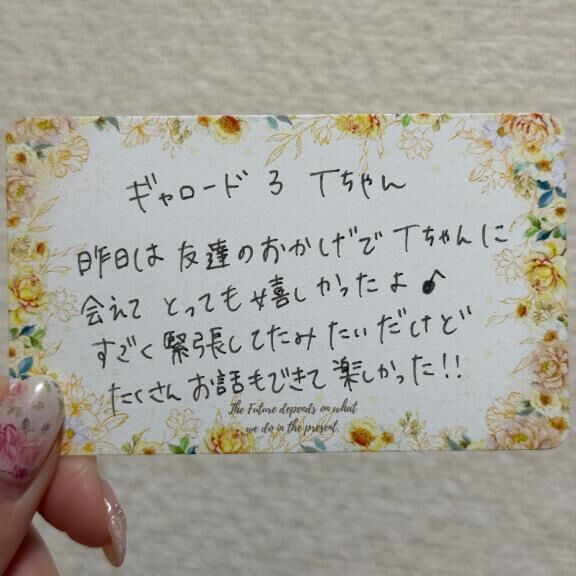 ギャロード 3 Tちゃん
昨日は 友達のおかげで Tちゃんに
会えて とっても嬉しかったよ♪
すごく 緊張してたみたいだけど
たくさん お話もできて 楽しかった!!
The Future depends on what
we do in the present.